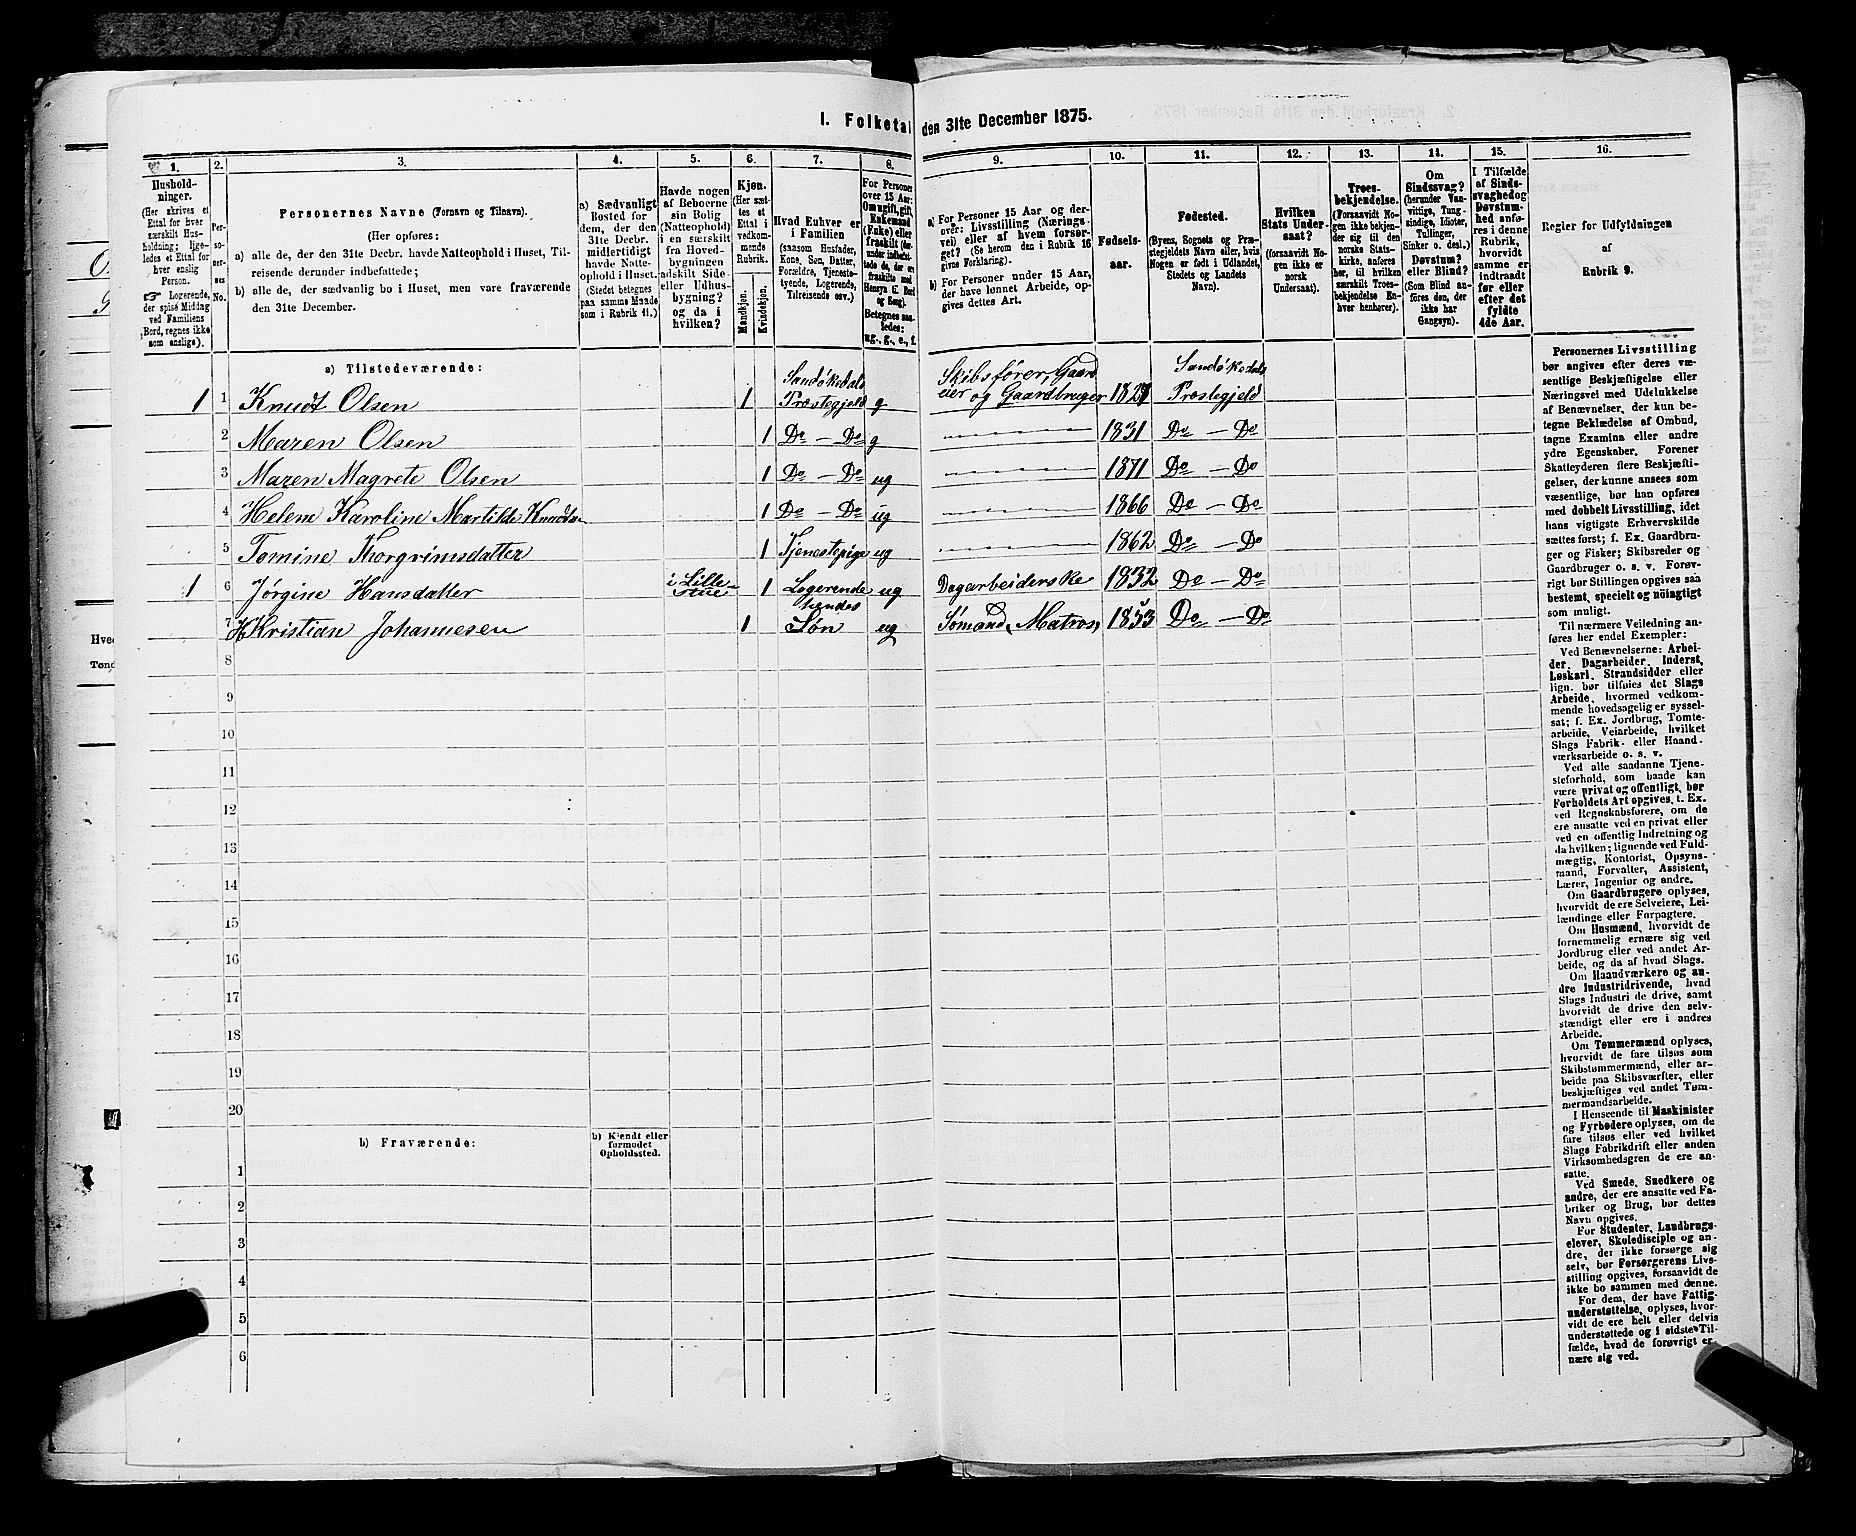 I. Folketal den 31te December 1875.
1. 2. 3. 4. 5. 6. 7. 8. 9. 10. 11. 12. 13. 14. 15. 16.
Hushold-
ninger.
(Her skrives et
Ettal for hver
særskilt Hus-
holdning; lige-
ledes et Ettal for
hver enslig
Person.
☞ Logerende,
der spise Middag
ved Familiens
Bord, regnes ikke
som enslige).
Per-
so-
ner-
nes
No.
Personernes Navne (Fornavn og Tilnavn).
(Her opføres:
a) alle de, der den 31te Decbr. havde Natteophold i Huset, Til-
reisende derunder indbefattede;
b) alle de, der sædvanlig bo i Huset, men vare fraværende
den 31te December.
a) Sædvanligt
Bosted for
dem, der den
31te Decbr.
midlertidigt
havde Natte-
ophold i Huset.
(Stedet betegnes
paa samme Maade
som i Rubrik 11.)
Havde nogen
af Beboerne
sin Bolig
(Natteophold)
i en særskilt
fra Hoved-
bygningen
adskilt Side-
eller Udhus-
bygning?
og da i
hvilken?
Kjøn.
(Her sæt-
tes et
Ettal i
vedkom-
mende
Rubrik.
Mandkjøn.
Kvindekjøn.
Hvad Enhver er
i Familien
(saasom Husfader,
Kone, Søn, Datter,
Forældre, Tjeneste-
tyende, Logerende,
Tilreisende osv.)
For Personer
over 15 Aar:
Om ugift, gift,
Enkemand
(Enke) eller
fraskilt
Betegnes saa-
ledes:
ug., g., e., f.
a) For Personer 15 Aar og der-
over: Livsstilling (Nærings-
vei) eller af hvem forsør-
get? (Se herom den i Rubrik 16
givne Forklaring).
b) For Personer under 15 Aar,
der have lønnet Arbeide, op-
gives dettes Art.
Fødsels-
aar.
Fødested.
(Byens, Sognets og Præ-
stegjeldets Navn eller, hvis
Nogen er født i Udlandet,
Stedets og Landets
Navn).
Hvilken
Stats Under-
saat?
(forsaavidt No-
gen ikke er
norsk
Undersaat).
Troes-
bekjendelse.
(Forsaavidt No-
gen ikke bekjen-
der sig til den
norske Stats-
kirke, anføres
her, til hvilken
særskilt Troes-
bekjendelse En-
hver henhører).
Om
Sindssvag?
(herunder Van-
vittige, Tung-
sindige, Idioter,
Tullinger,
Sinker o. desl.)
Døvstum?
eller Blind?
(Som Blind an-
føres den, der
ikke har
Gangsyn).
I Tilfælde
af Sinds-
svaghed og
Døvstum-
hed anfø-
res i denne
Rubrik,
hvorvidt
samme er
indtraadt
før eller
efter det
fyldte
4de Aar.
Regler for Udfyldningen
af
Rubrik 9.
a) Tilstedeværende:
1 1 Knudt Olsen 1 Sandøkedals Præstegjeld g Skibsfører, Gaard eier og Gaardbruger 1821 Sandøkedals Præstegjeld
2 Maren Olsen 1 Do — Do g 1831 Do — Do
3 Maren Magrete Olsen 1 Do — Do ug 1871 Do — Do
4 Helene Karoline Martilde Knudts 1 Do — Do ug 1866 Do — Do
5 Tomine Thorgrimsdatter 1 Tjenestepige ug 1862 Do — Do
1 6 Jørgine Hansdatter i Lille Stue 1 Logerende ug Dagarbeiderske 1832 Do — Do
7 H Kristian Johannesen 1 hendes Søn ug Sømand, Matros, 1853 Do — Do
8
9
10
11
12
13
14
15
16
17
18
19
20
b) Fraværende:
b) Kjendt eller
formodet
Opholdssted.
1
2
3
4
5
6
Personernes Livsstilling
bør angives efter deres væ-
sentlige Beskjæftigelse eller
Næringsvei med Udelukkelse
af Benævnelser, der kun be-
tegne Beklædelse af Ombud,
tagne Examina eller andre
ydre Egenskaber. Forener
Skatteyderen flere Beskjæfti-
gelser, der kunne ansees som
væsentlige, bør han opføres
med dobbelt Livsstilling, idet
hans vigtigste Erhvervskilde
sættes først; f. Ex. Gaardbru-
ger og Fisker; Skibsreder og
Gaardbruger o. s. v. Forøv-
rigt bør Stillingen opgives saa
bestemt, specielt og nöiagtigt
som muligt.
Til nærmere Veiledning an-
føres her endel Exempler:
Ved Benævnelserne: Arbei-
der, Dagarbeider, Inderst,
Løskarl, Strandsidder eller
lign. bør tilføies det Slags
Arbeide, hvormed vedkom-
mende hovedsagelig er syssel-
sat; f. Ex. Jordbrug, Tomte-
arbeide, Veiarbeide, hvilket
Slags Fabrik- eller Haand-
værksarbeide o. s. v.
Ved alle saadanne Tjene-
steforhold, som baade kan
være privat og offentligt, bør
Forholdets Art opgives, f. Ex.
ved Regnskabsførere, om de
ere ansatte ved en privat eller
ved en offentlig Indretning og
da hvilken; lignende ved Fuld-
mægtig, Kontorist, Opsyns-
mand, Forvalter, Assistent,
Lærer, Ingeniør og andre.
Om Gaardbrugere oplyses,
hvorvidt de ere Selveiere, Lei-
lændinge eller Forpagtere.
Om Husmænd, hvorvidt de
fornemmelig ernære sig ved
Jordbrug eller ved andet Ar-
beide, og da af hvad Slags.
Om Haandværkere og an-
dre Industridrivende, hvad
Slags Industri de drive, samt
hvorvidt de drive den selv-
stændigt eller ere i andres
Arbeide.
Om Tømmermænd oplyses,
hvorvidt de fare tilsøs som
Skibstømmermænd, eller ar-
beide paa Skibsværfter, eller
beskjæftiges ved andet Tøm-
mermandsarbeide.
I Henseende til Maskinister
og Fyrbødere oplyses, om de
fare tilsøs eller ved hvilket
Slags Fabrikdrift eller anden
Virksomhedsgren de ere an-
satte.
Ved Smede, Snedkere og
andre, der ere ansatte ved Fa-
briker og Brug, bør dettes
Navn opgives.
For Studenter, Landbrugs-
elever, Skoledisciple og an-
dre, der ikke forsørge sig
selv, bør Forsørgerens Livs-
stilling opgives, forsaavidt de
ikke bo sammen med denne.
For dem, der have Fattig-
understøttelse, oplyses, hvor-
vidt de ere helt eller delvis
understøttede og i sidste Til-
fælde, hvad de forøvrigt er-
nære sig ved.